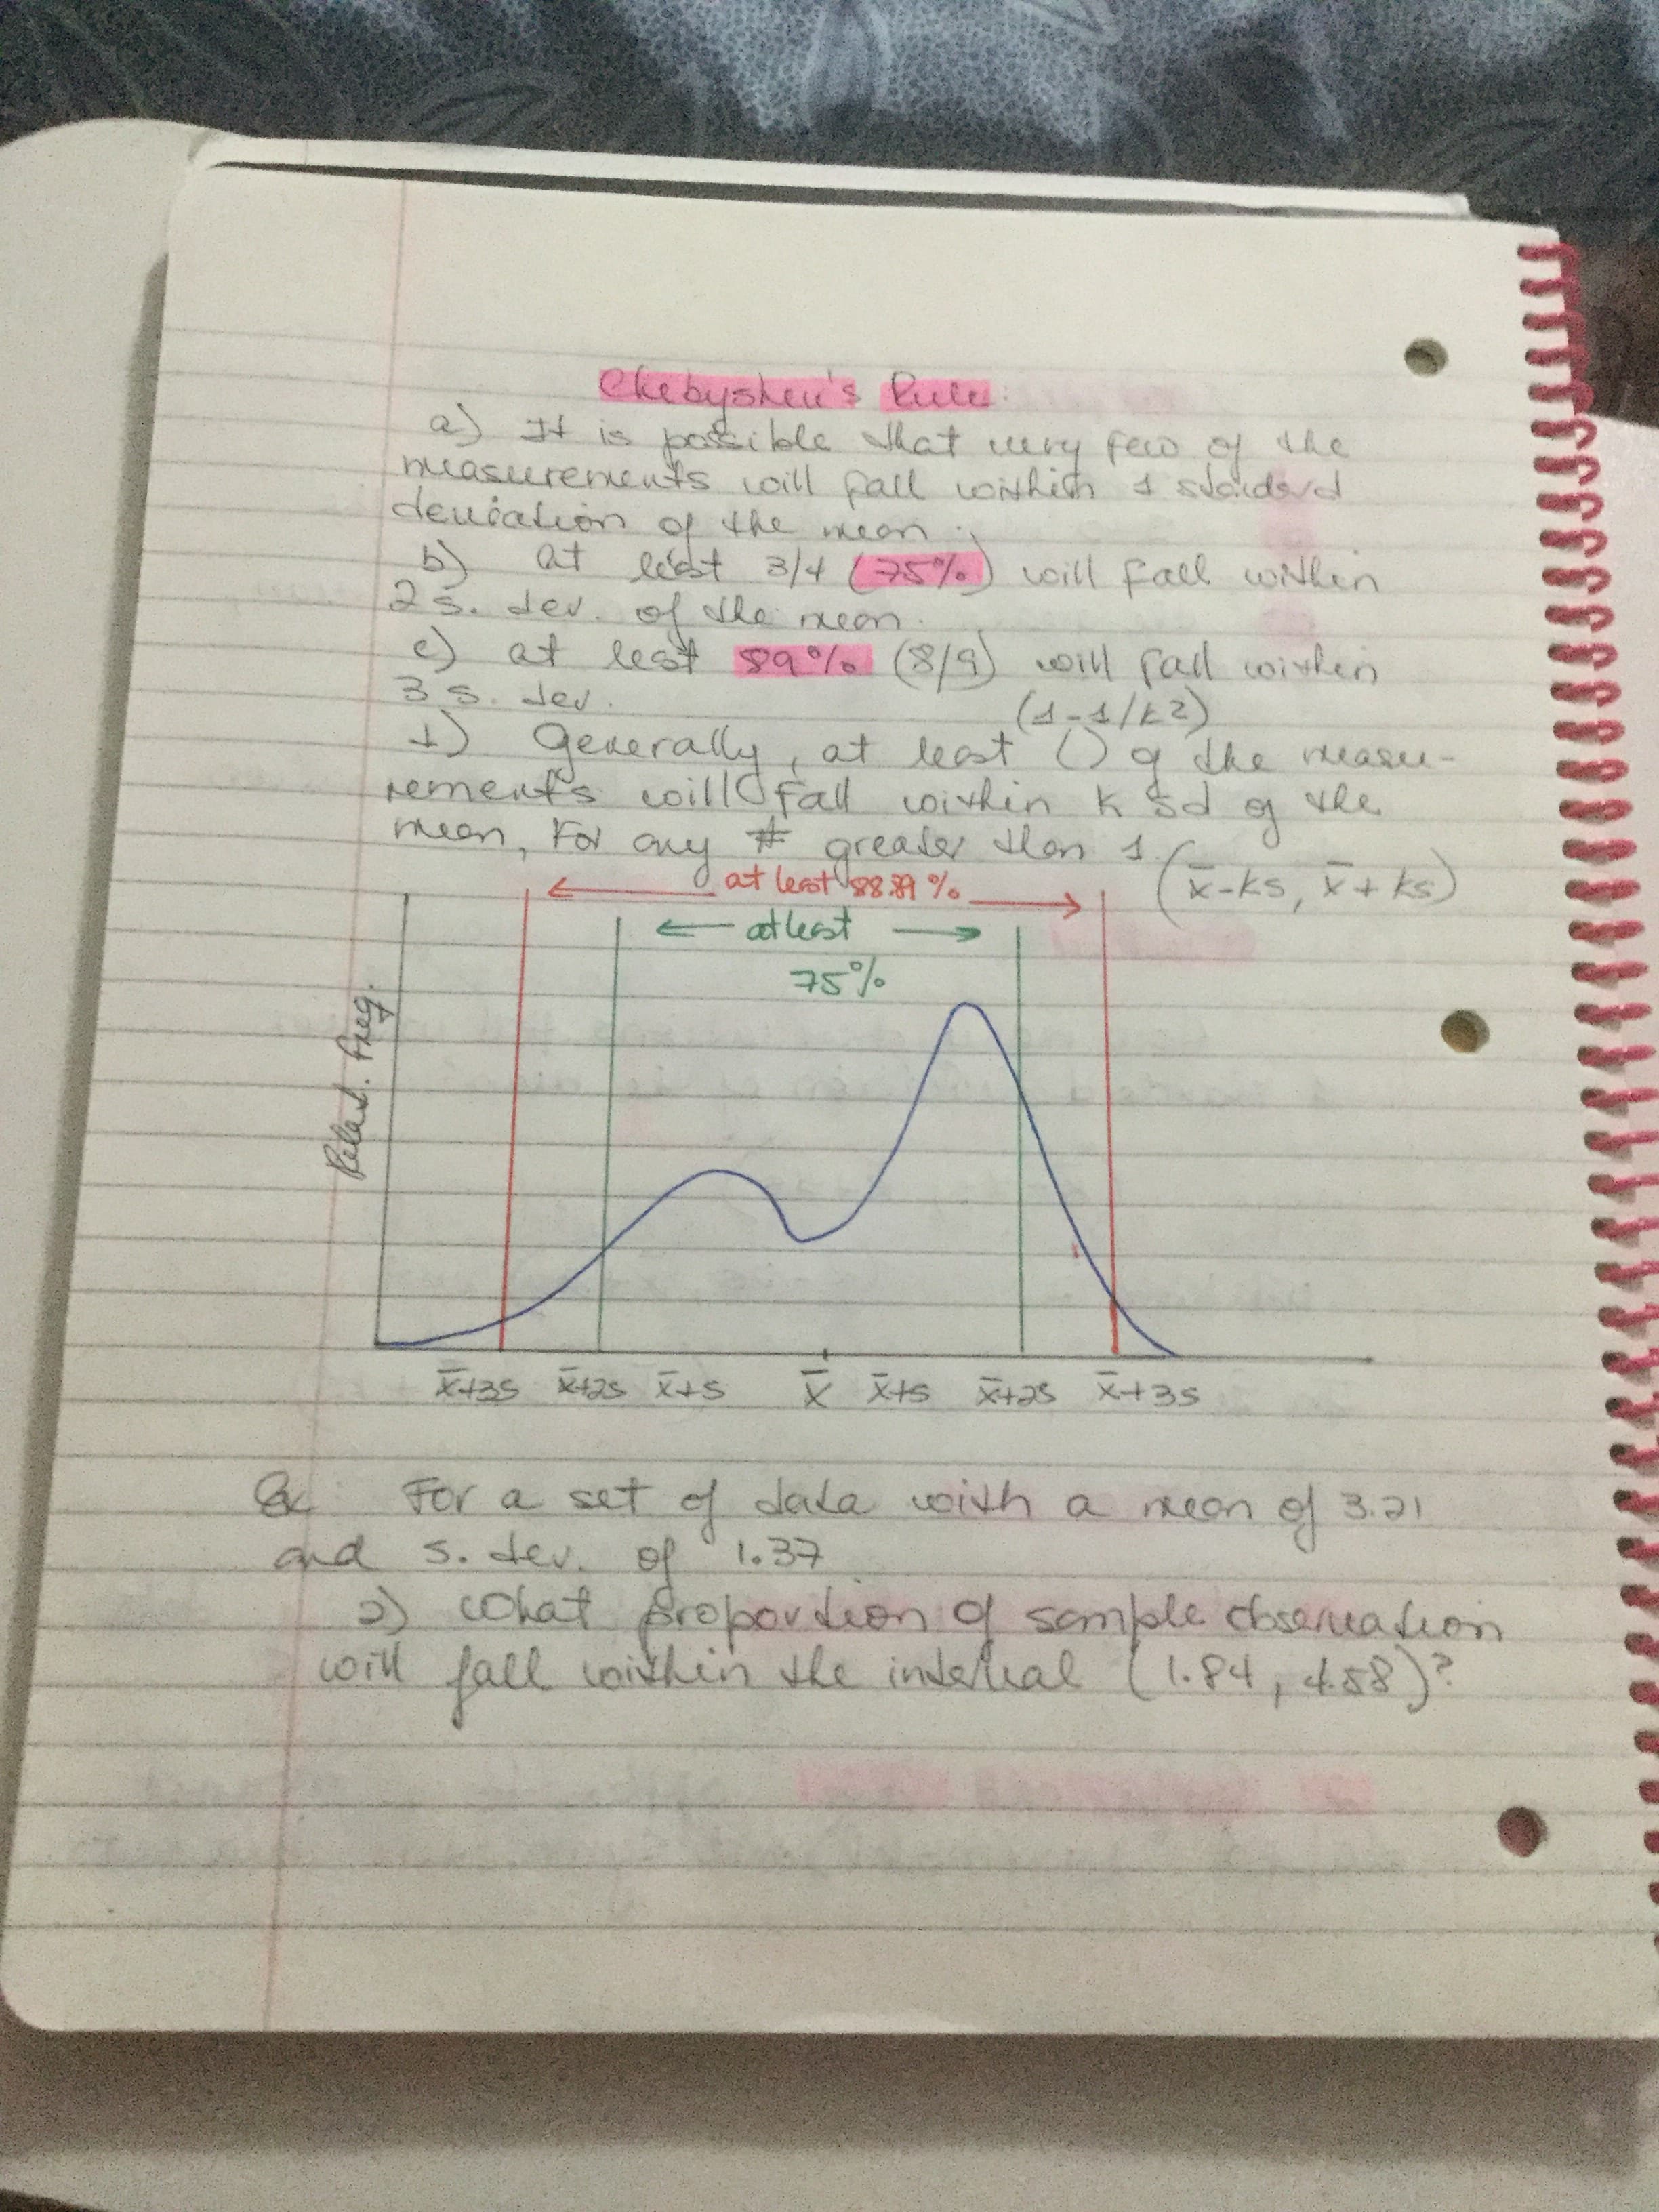 Chebyshev's Rule
a) It is possible that very few of the
measurements will fall within 1 standard
deviation of the mean.
b) at least 3/4 (75%) will fall within
2 s. dev. of the mean.
c) at lest 89% (8/9) will fall within
3 s. dev.
(1-1/k2)
1) Generally, at least () of the measu-
rements will fall within k sd of the
mean, For any # greater than 1.
(x̄-ks, x̄+ks)
at least 88.89%
at least
75%
Relat. Freq.
x̄+3s x̄+2s x̄+s x̄ x̄+s x̄+2s x̄+3s
Ex: For a set of data with a mean of 3.21
and s. dev. of 1.37
a) What proportion of sample observation
will fall within the interval (1.84, 4.58)?